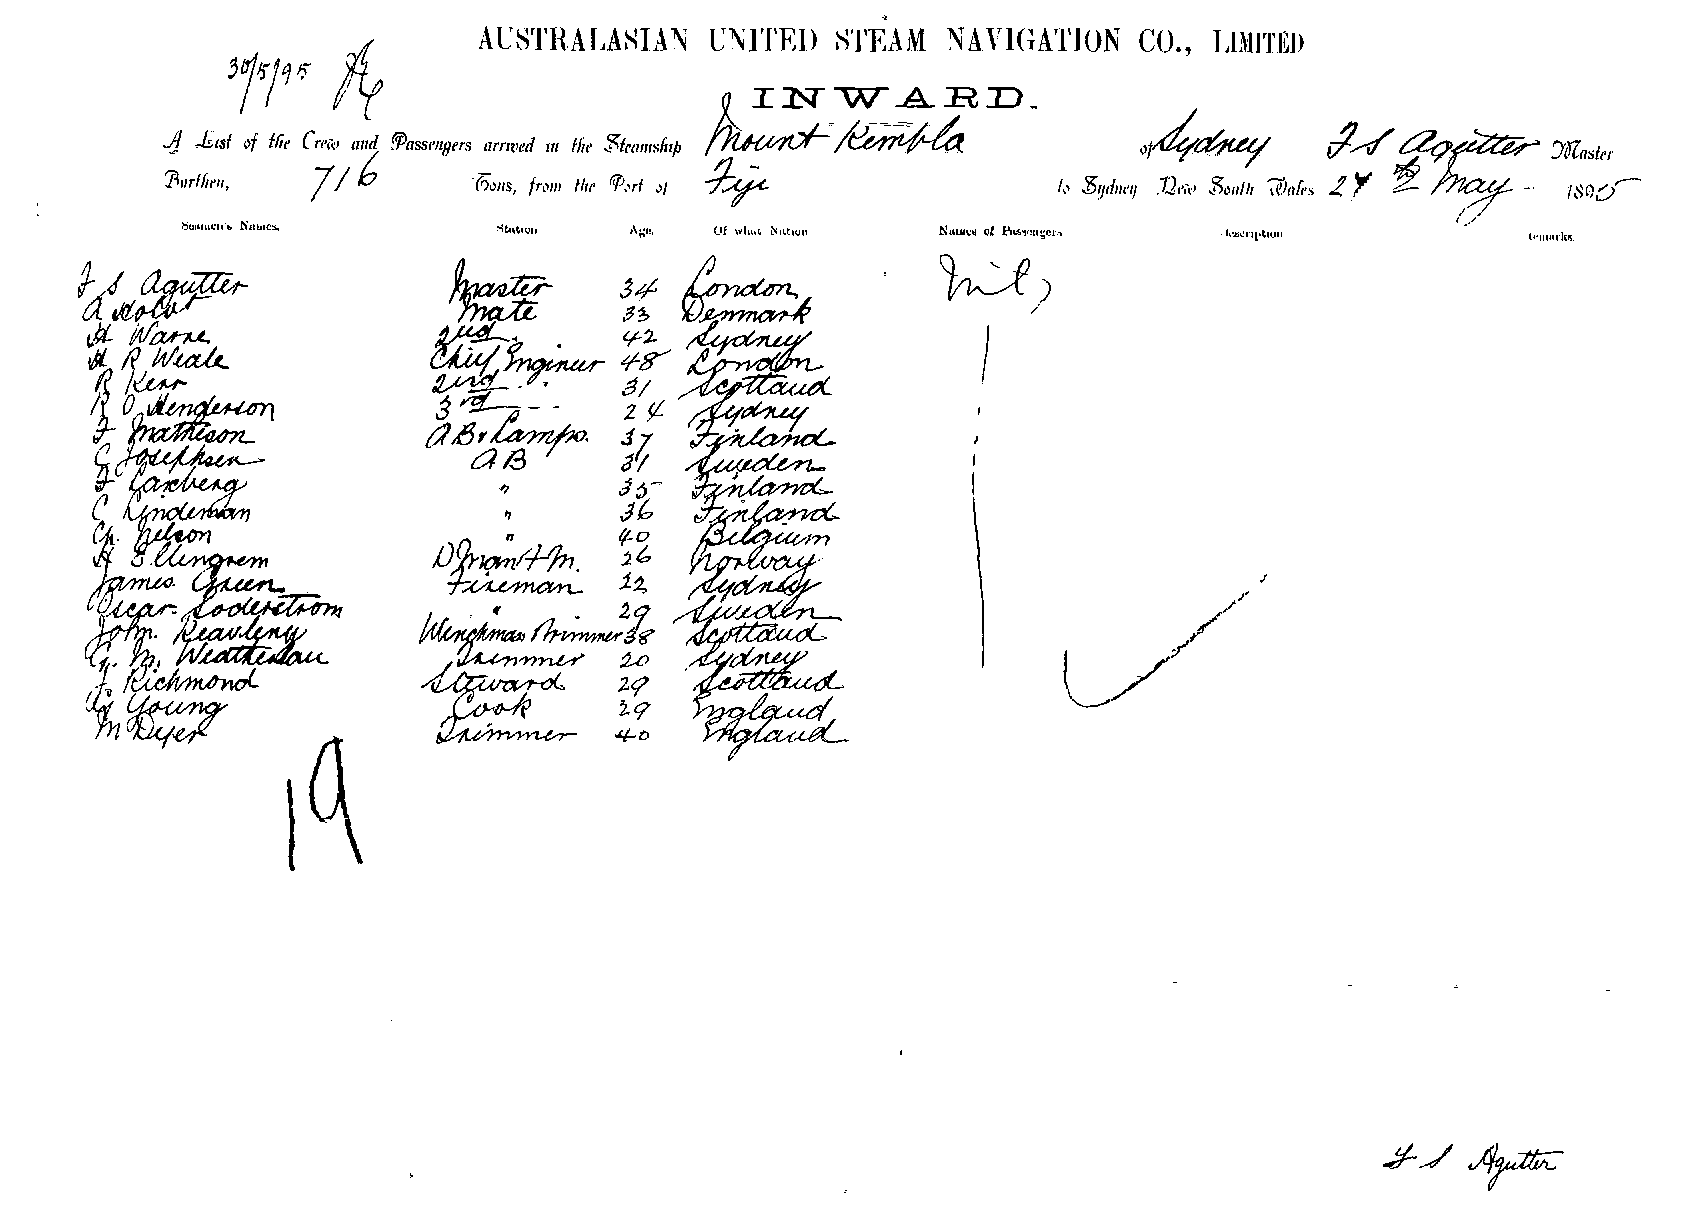 AUSTRALASIAN UNITED STEAM NAVIGATION CO., LIMITED
30/5/95
INWARD.
A List of the Crew and Passengers arrived in the Steamship Mount Kembla of Sydney F S Agutter Master
Burthen, 716 Tons, from the Port of Fiji to Sydney New South Wales 24 th May 1895
Seamen's Names. Station Age. Of what Nation Names of Passengers Description Remarks.
F S Agutter Master 34 London Nil
A Holst Mate 33 Denmark
H Warne 2nd 42 Sydney
H R Weale Chief Engineer 48 London
R Kerr 2nd " 31 Scotland
R O Henderson 3rd 24 Sydney
F Matheson AB & Lamps. 37 Finland
C Josephsen AB 31 Sweden
F Laxberg " 35 Finland
C Lindeman " 36 Finland
Ch. Nelson " 40 Belgium
H Ellengrem 26 Norway
James Green Fireman 22 Sydney
Oscar Soderstrom " 29 Sweden
John Reavleny Winchman Trimmer 38 Scotland
G. M. Weatherlau Trimmer 20 Sydney
J. Richmond Steward 29 Scotland
G Young Cook 29 England
M Dyer Trimmer 40 England
19
F S Agutter